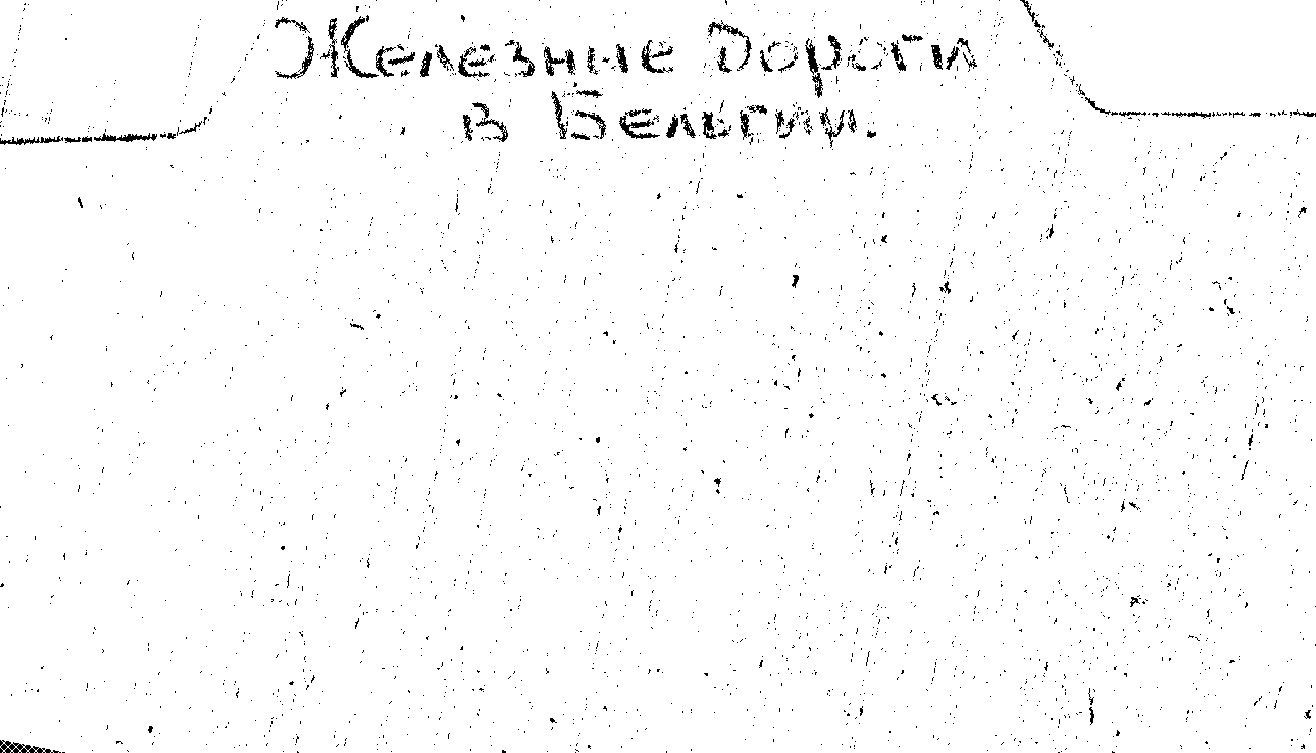 Железные Дороги
в Бельгии.